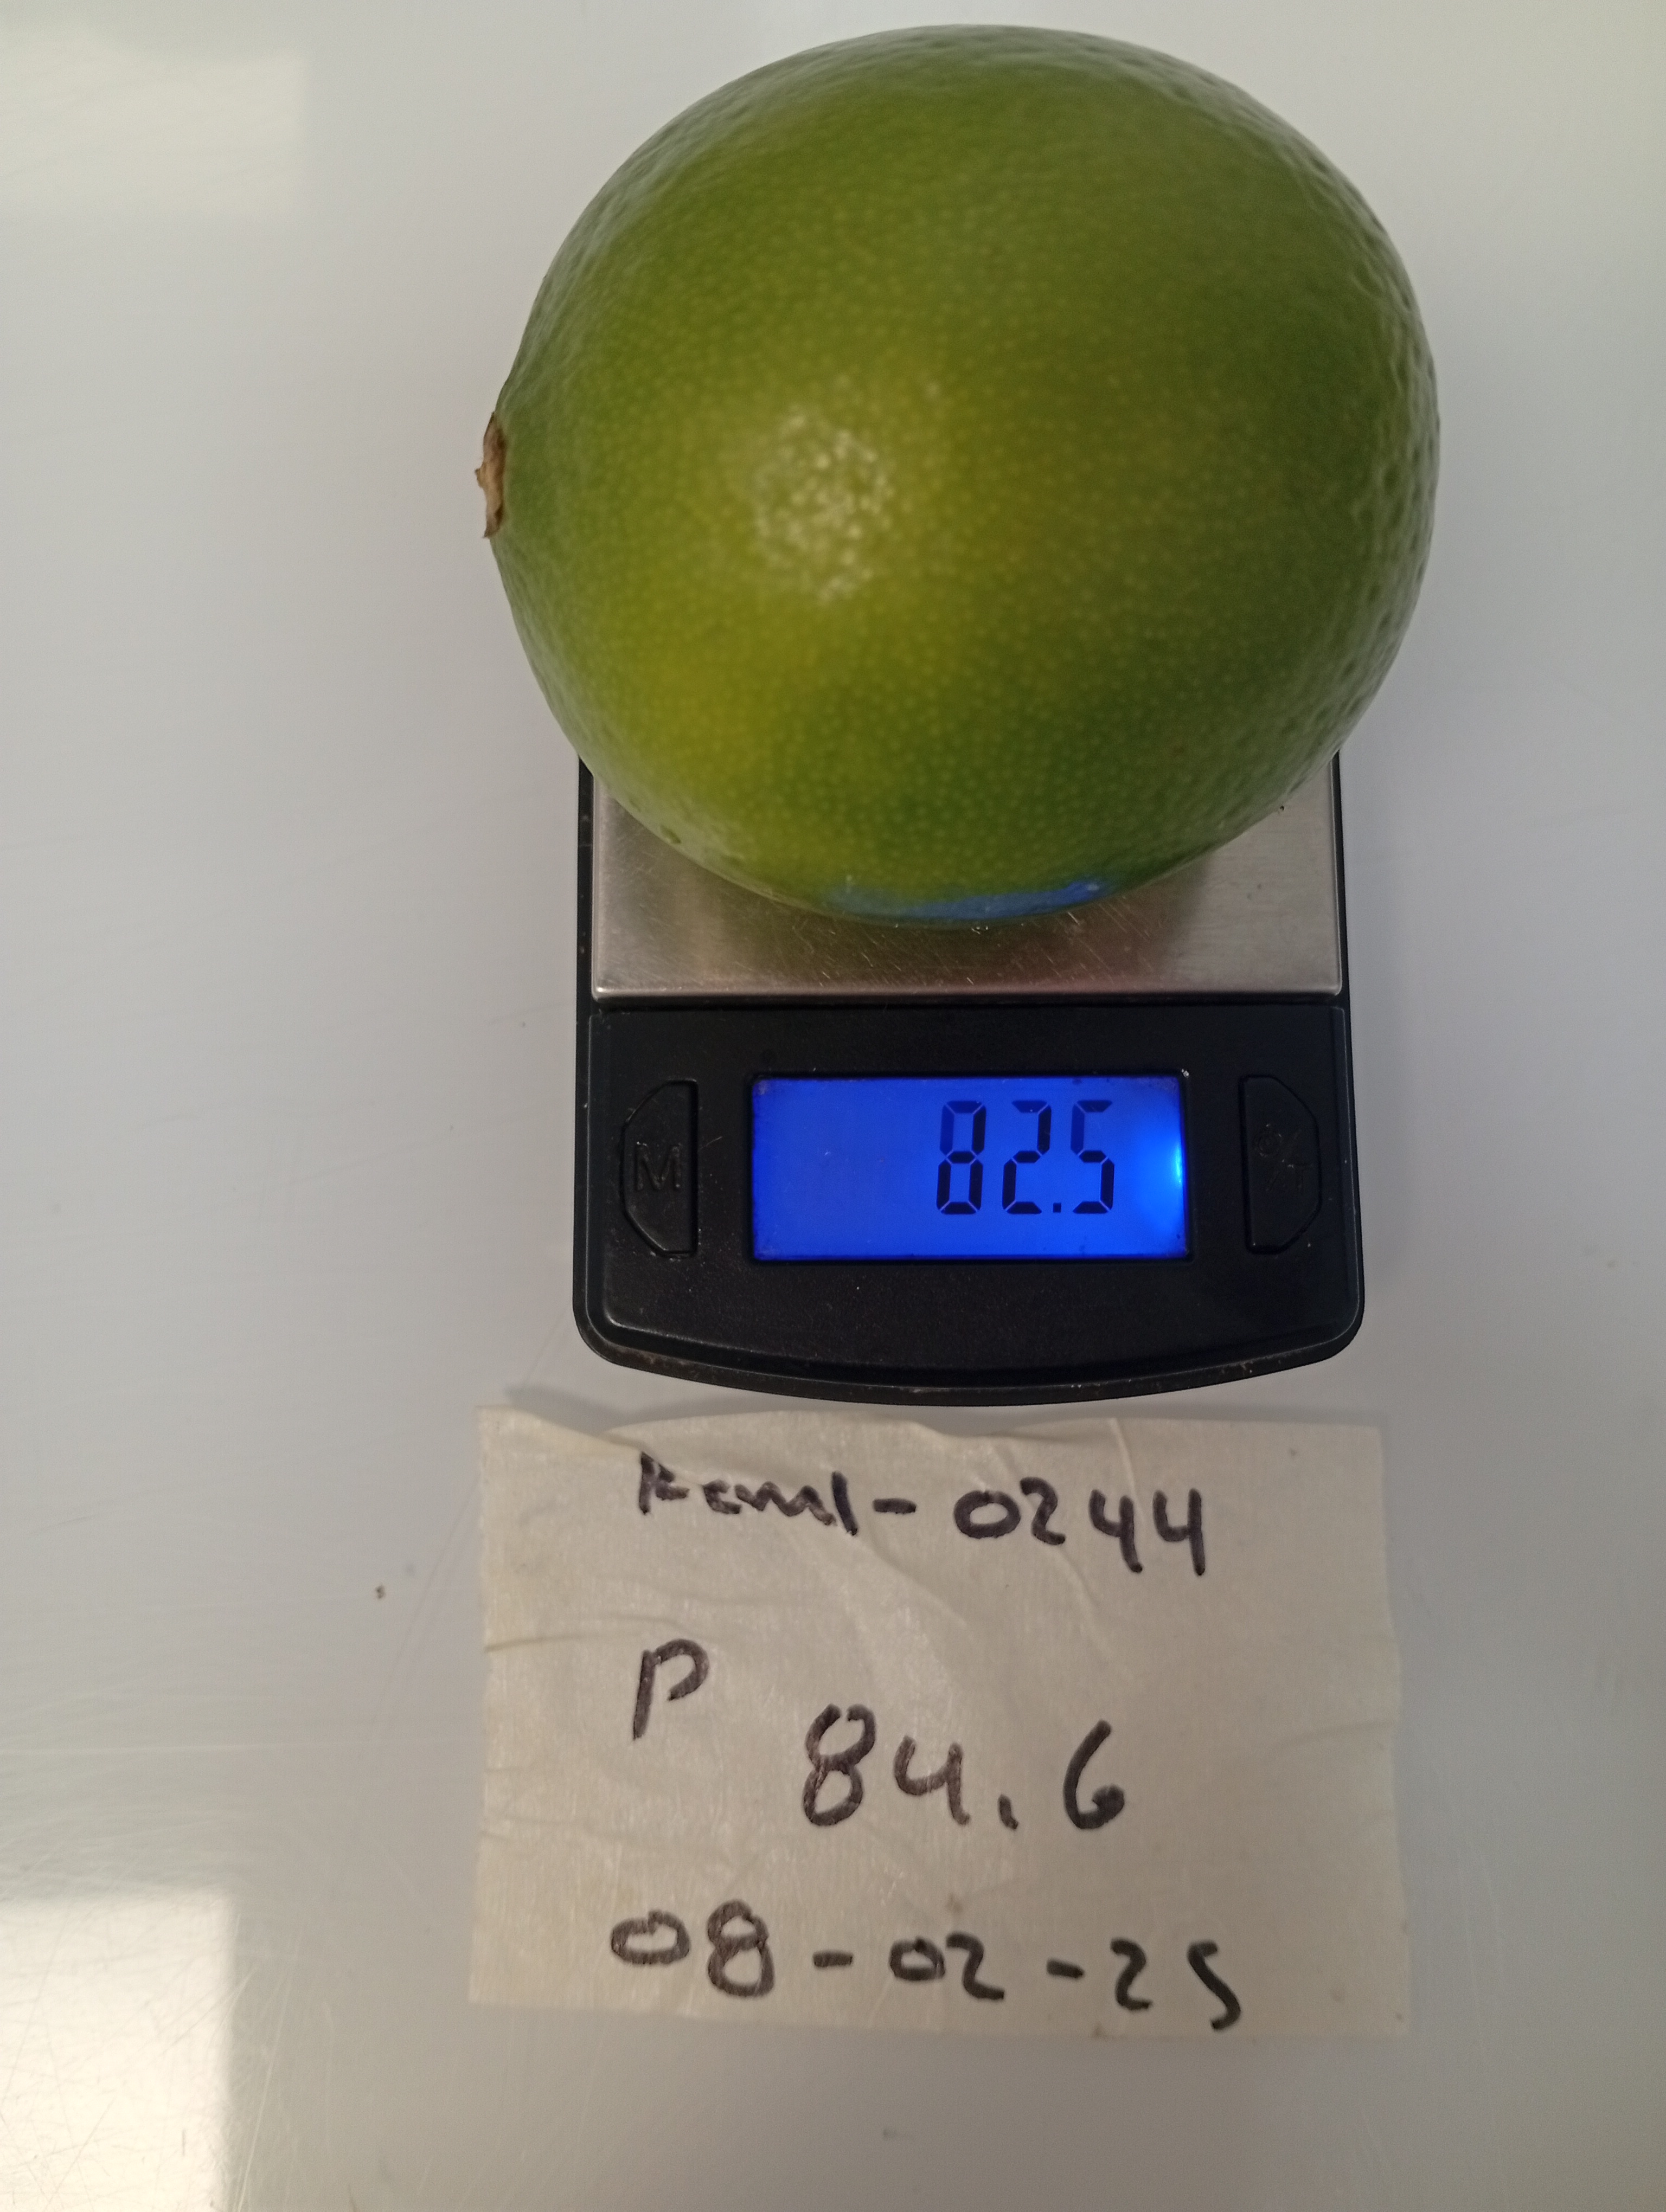 M
82.5
-0244
P
84.6
08-02-25